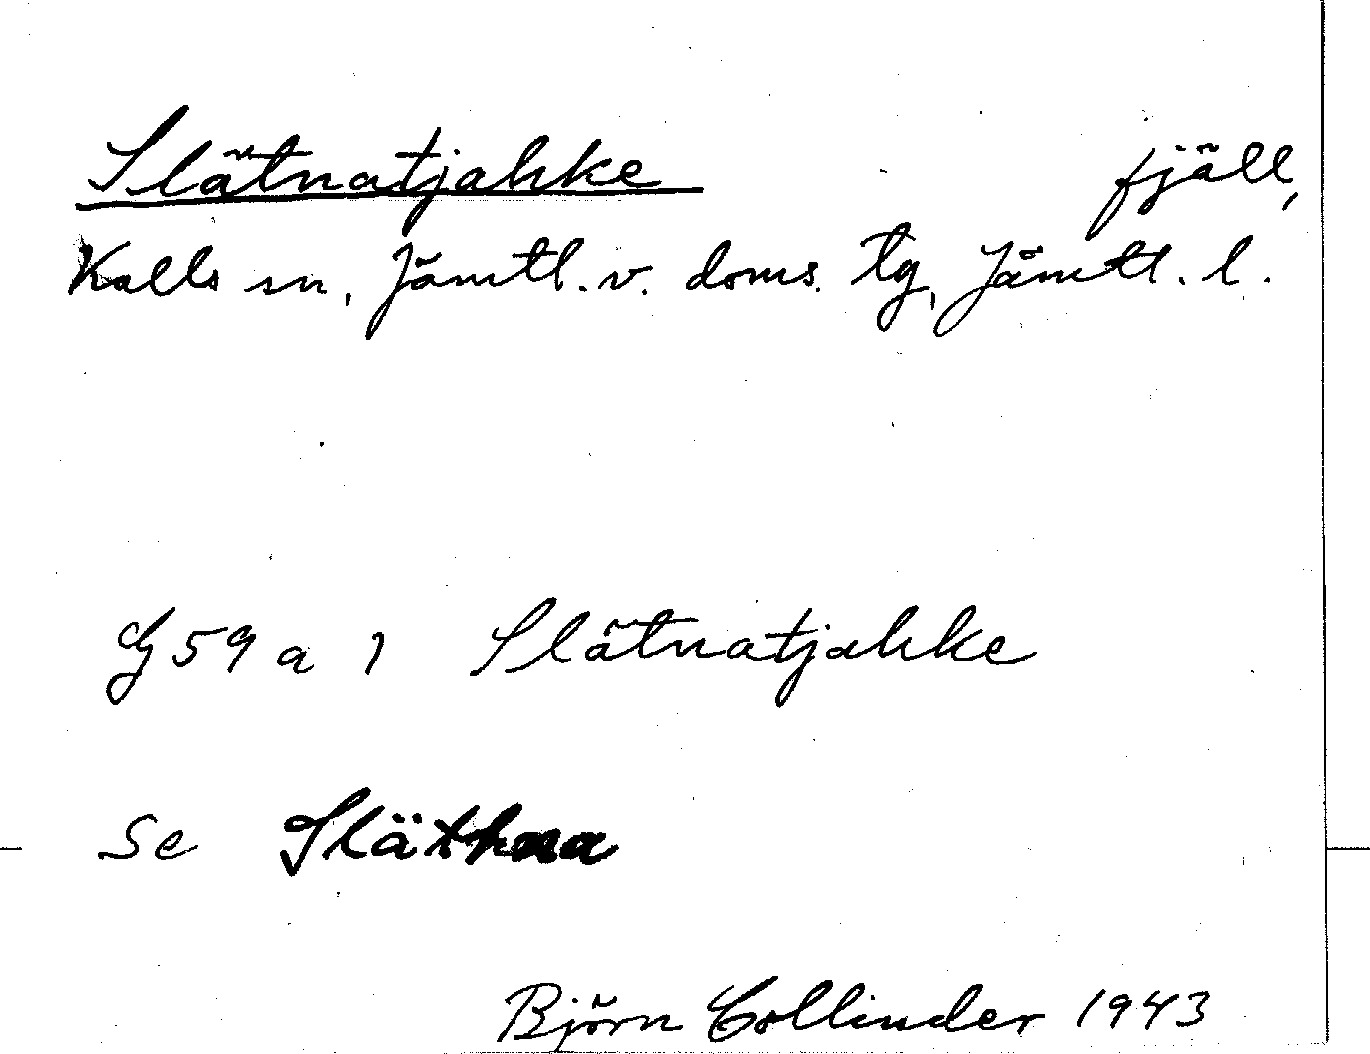 Slätnatjahke fjäll,
Kalls sn, Jämtl. v. doms. tg, Jämtl. l.
Gj 59 a 1 Slätnatjahke
Se Gläthna
Björn Collinder 1943